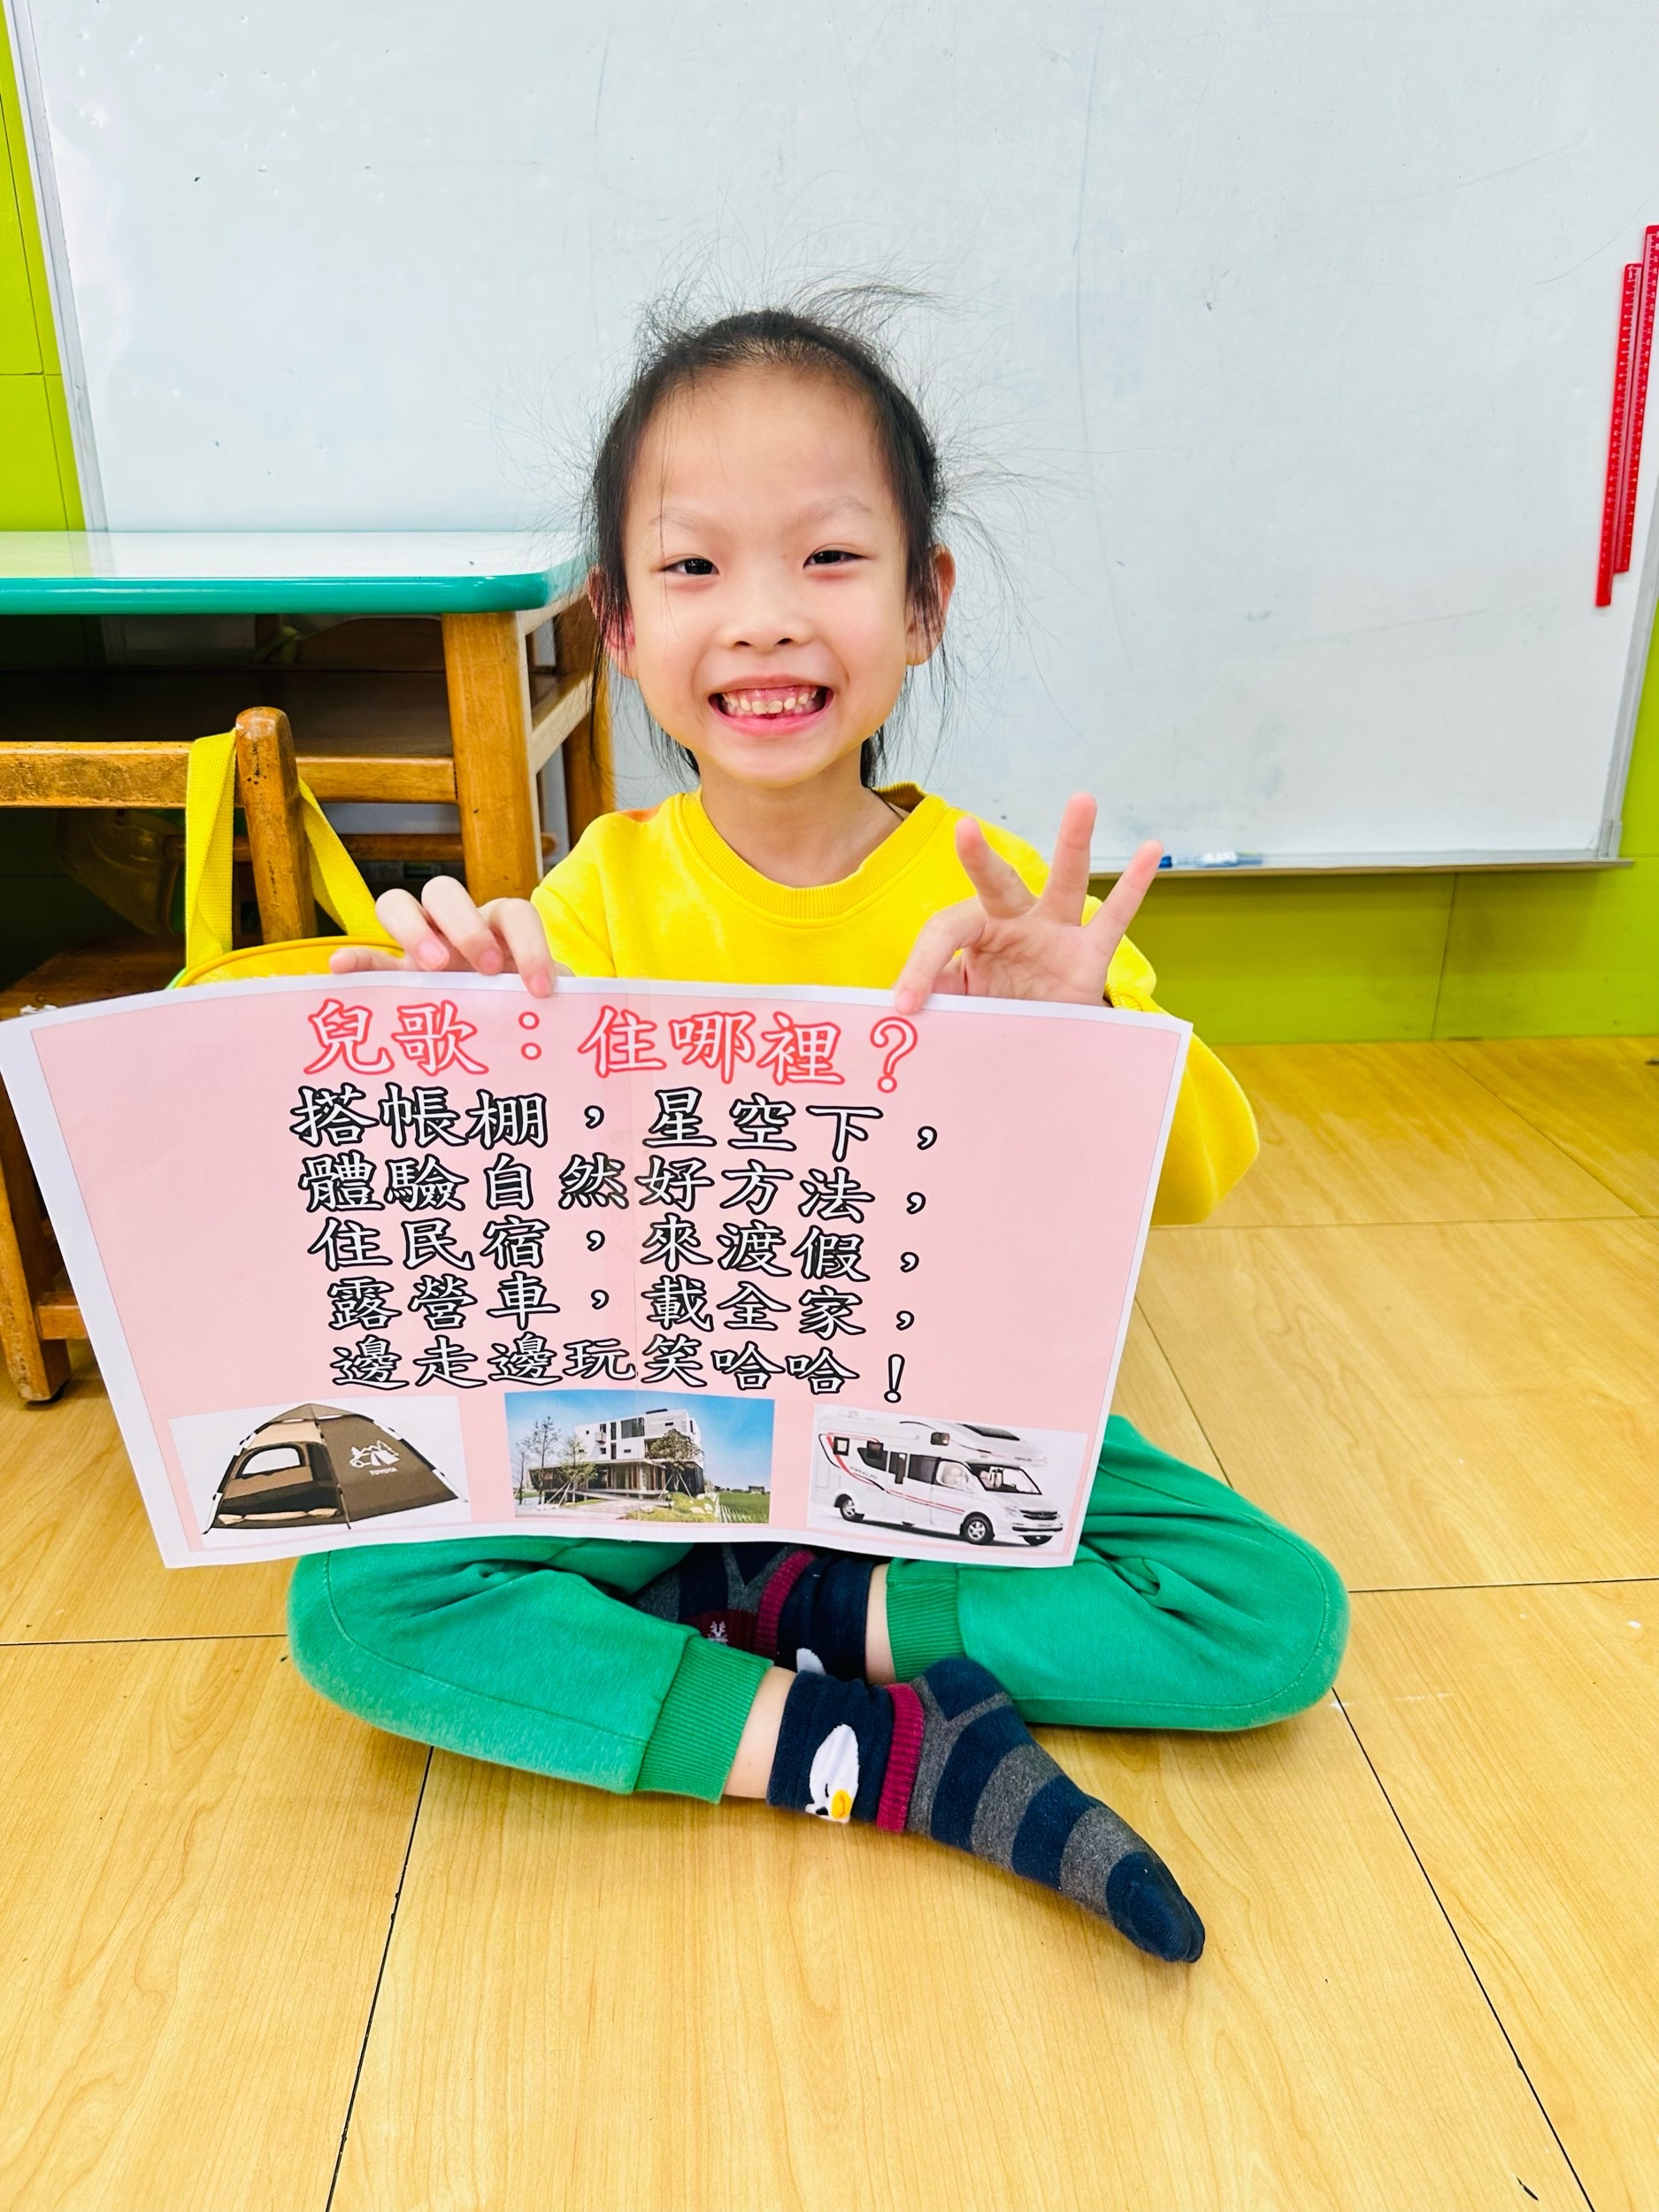 兒歌：住哪裡？
搭帳棚，星空下，
體驗自然好方法，
住民宿，來渡假，
露營車，載全家，
邊走邊玩笑哈哈！
TOYOTA